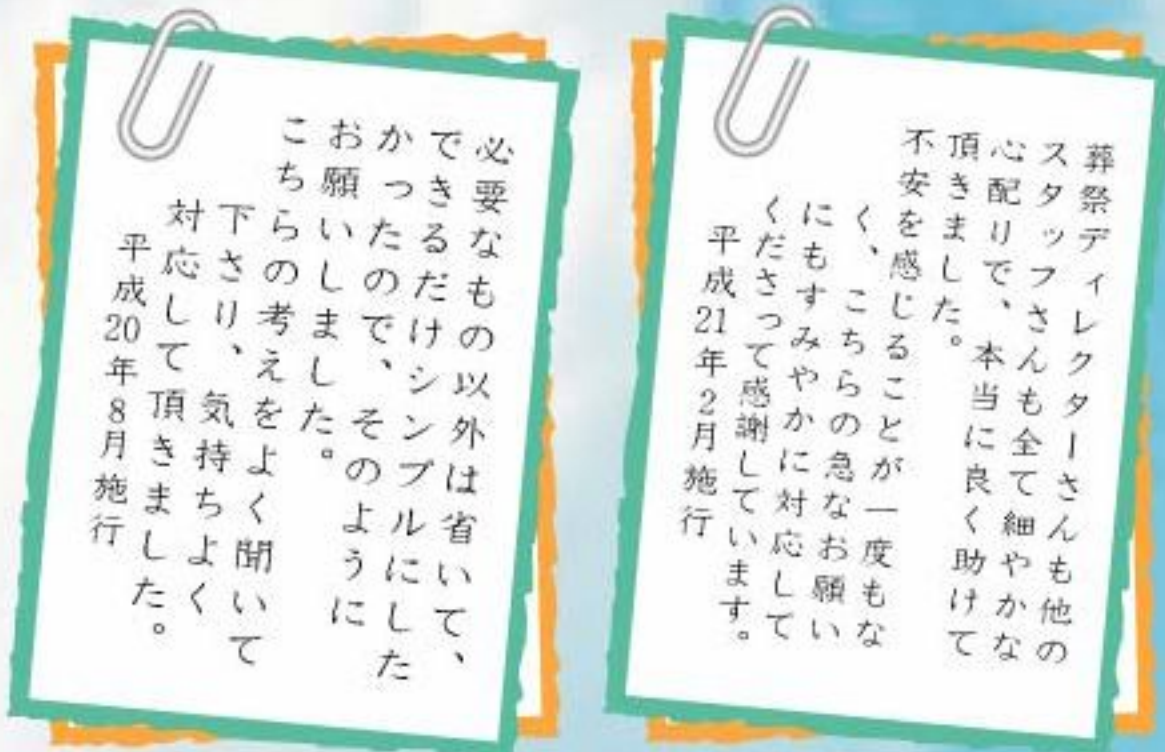 葬祭ディレクターさんも他の
スタッフさんも全て細やかな
心配りで、本当に良く助けて
頂きました。
不安を感じることが一度もな
く、こちらの急なお願い
にもすみやかに対応して
くださって感謝しています。
平成21年2月施行
必要なもの以外は省いて、
できるだけシンプルにした
かったので、そのように
お願いしました。
こちらの考えをよく聞いて
下さり、気持ちよく
対応して頂きました。
平成20年8月施行